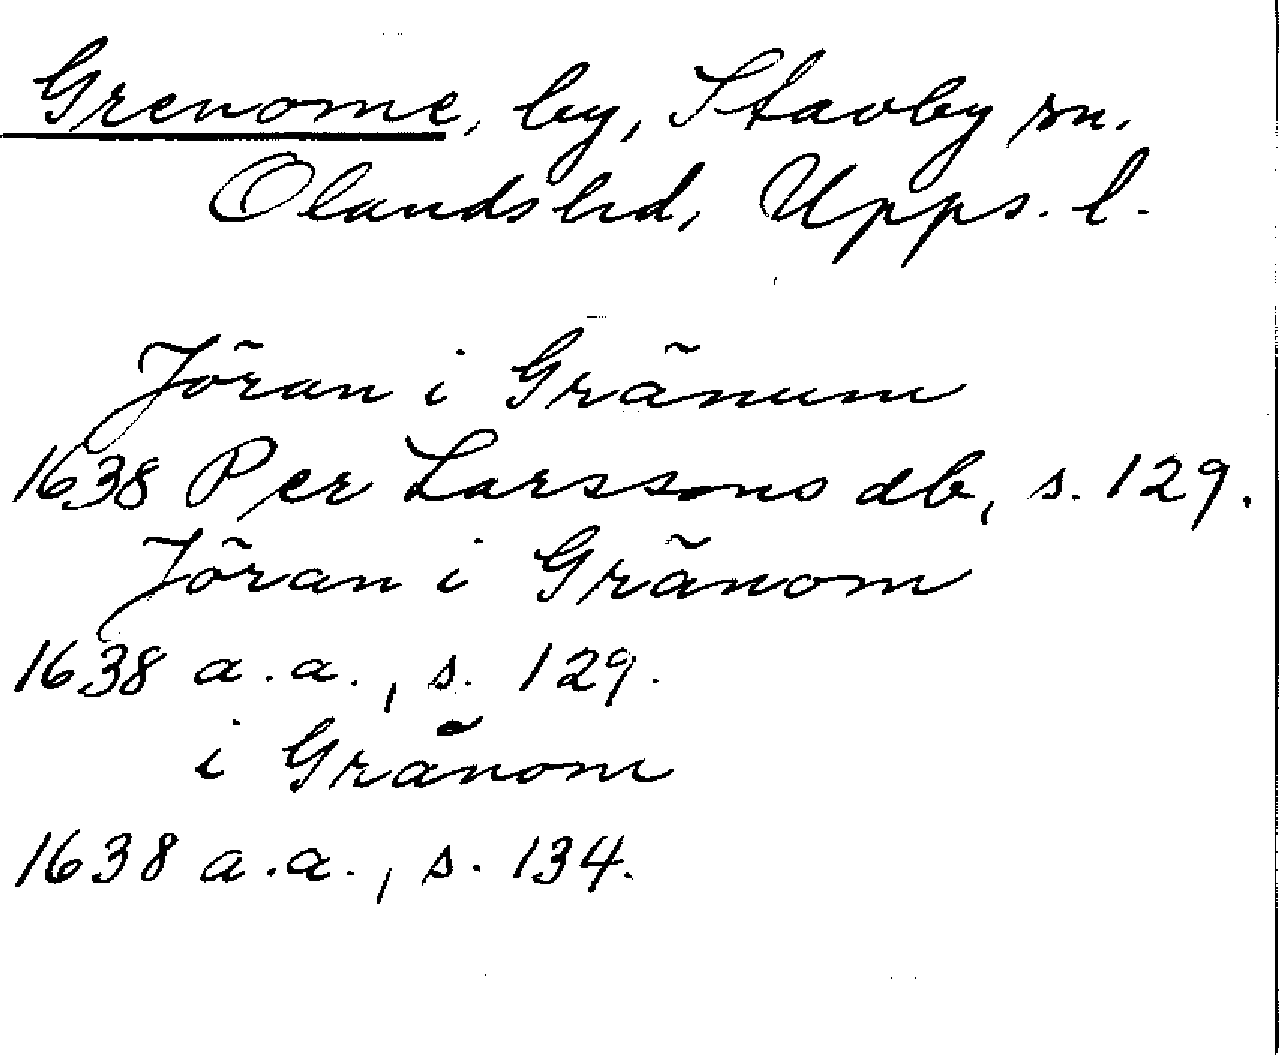 Grenome, by, Stavby sn.
Olands hd, Upps. l.
Jöran i Gränum
1638 Per Larssons db, s. 129.
Jöran i Gränom
1638 a.a., s. 129.
i Gränom
1638 a.a., s. 134.